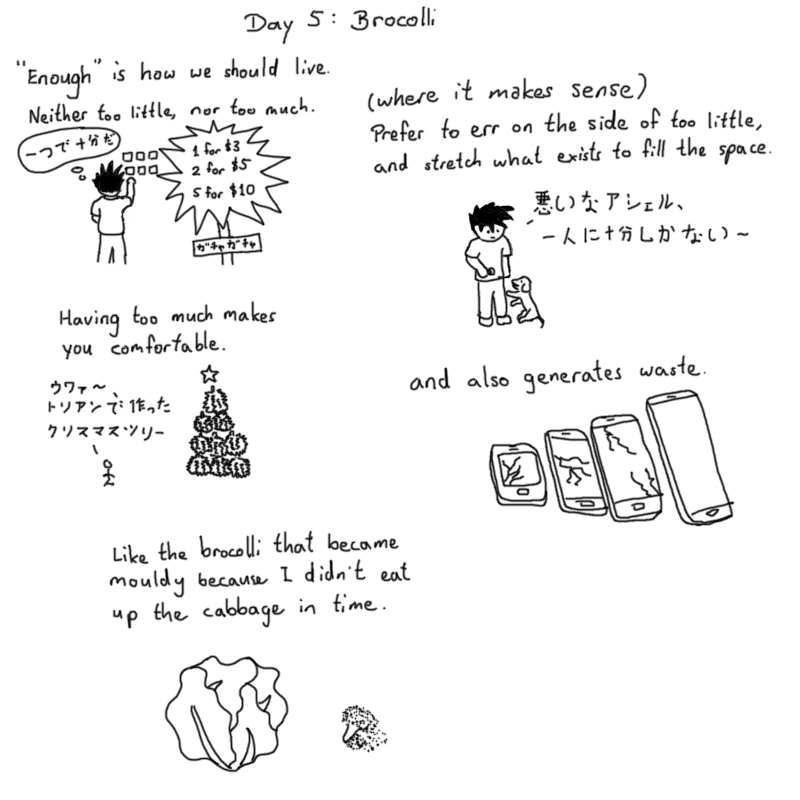 Day 5: Brocolli
"Enough" is how we should live.
Neither too little, nor too much.
一つで十分だ
1 for $3
2 for $5
5 for $10
ガチャガチャ
(where it makes sense)
Prefer to err on the side of too little,
and stretch what exists to fill the space.
悪いなアシェル、
一人に十分しかない～
Having too much makes
you comfortable.
ウワァ～、
トリアンで作った
クリスマスツリー
and also generates waste.
Like the brocolli that became
mouldy because I didn't eat
up the cabbage in time.